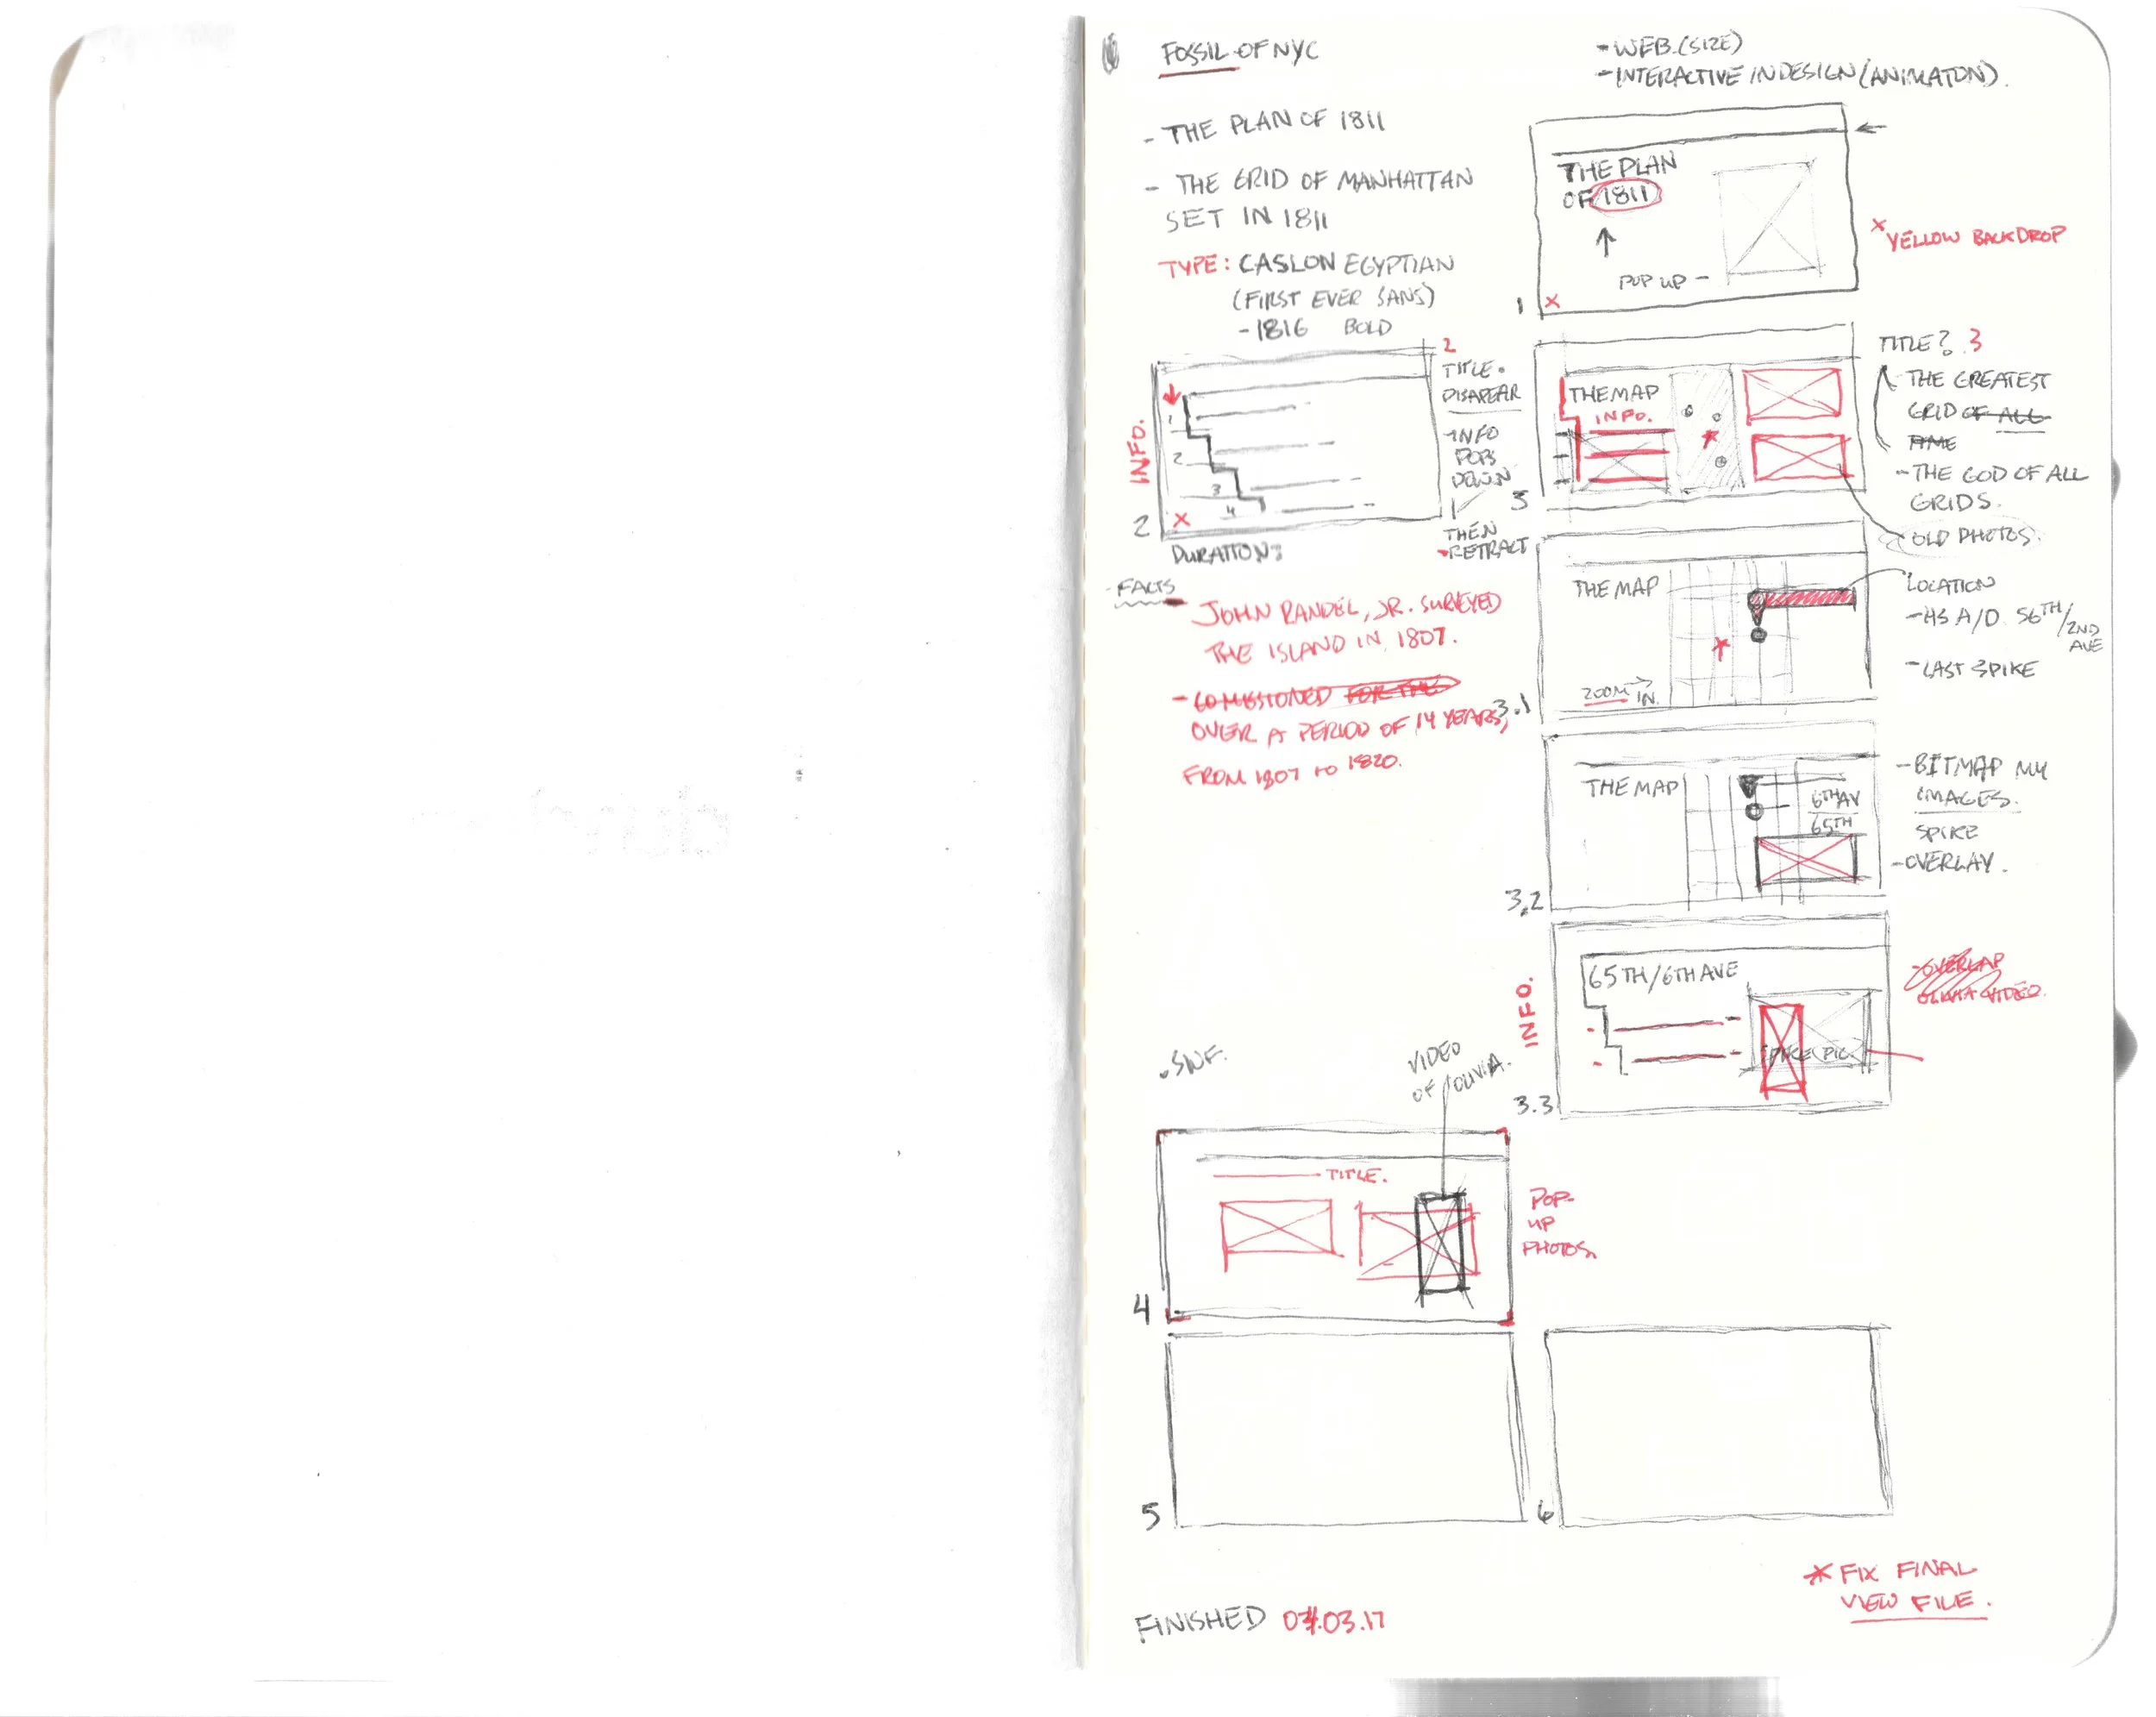 FOSSIL OF NYC
- WEB. (SIZE)
- INTERACTIVE INDESIGN (ANIMATON).
- THE PLAN OF 1811
- THE GRID OF MANHATTAN
SET IN 1811
TYPE: CASLON EGYPTIAN
(FIRST EVER SANS)
- 1816 BOLD
THE PLAN
OF 1811
POP UP -
1 x
x YELLOW BACKDROP
INFO.
1
2
3
4
2 x
DURATION:
2
TITLE.
DISAPEAR
- INFO
POPS
DOWN
THEN
- RETRACT
THE MAP
INFO.
3
TITLE? 3
- THE GREATEST
GRID OF ALL
TIME
- THE GOD OF ALL
GRIDS.
OLD PHOTOS.
- FACTS
- JOHN RANDEL, JR. SURVEYED
THE ISLAND IN 1807.
- COMISSIONED FOR THE
OVER A PERIOD OF 14 YEARS,
FROM 1807 TO 1820.
THE MAP
ZOOM IN.
3.1
LOCATION
- HS A/D 56TH/2ND
AVE
- LAST SPIKE
THE MAP
6TH AV
65TH
3.2
- BITMAP MY
IMAGES.
SPIKE
- OVERLAY.
INFO.
65TH/6TH AVE
SPIKE PIC
3.3
- OVERLAP
OLIVIA VIDEO.
VIDEO
OF OLIVIA.
TITLE.
4
POP-
UP
PHOTOS.
5
6
* FIX FINAL
VIEW FILE.
FINISHED 04.03.17